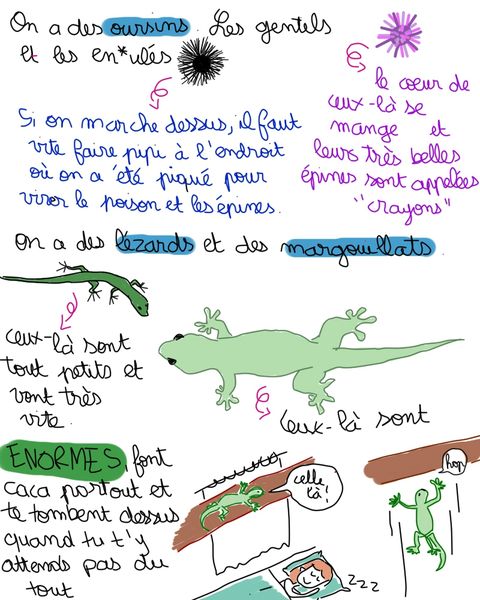 On a des oursins. Les gentils
et les en*ulés
le cœur de
ceux-là se
mange et
leurs très belles
épines sont appelées
"crayons"
Si on marche dessus, il faut
vite faire pipi à l'endroit
où on a été piqué pour
virer le poison et les épines.
On a des lézards et des margouillats.
Ceux-là sont
tout petits et
vont très
vite.
Ceux-là sont
ENORMES, font
caca partout et
te tombent dessus
quand tu t'y
attends pas du
tout
celle
là!
zzz
hop